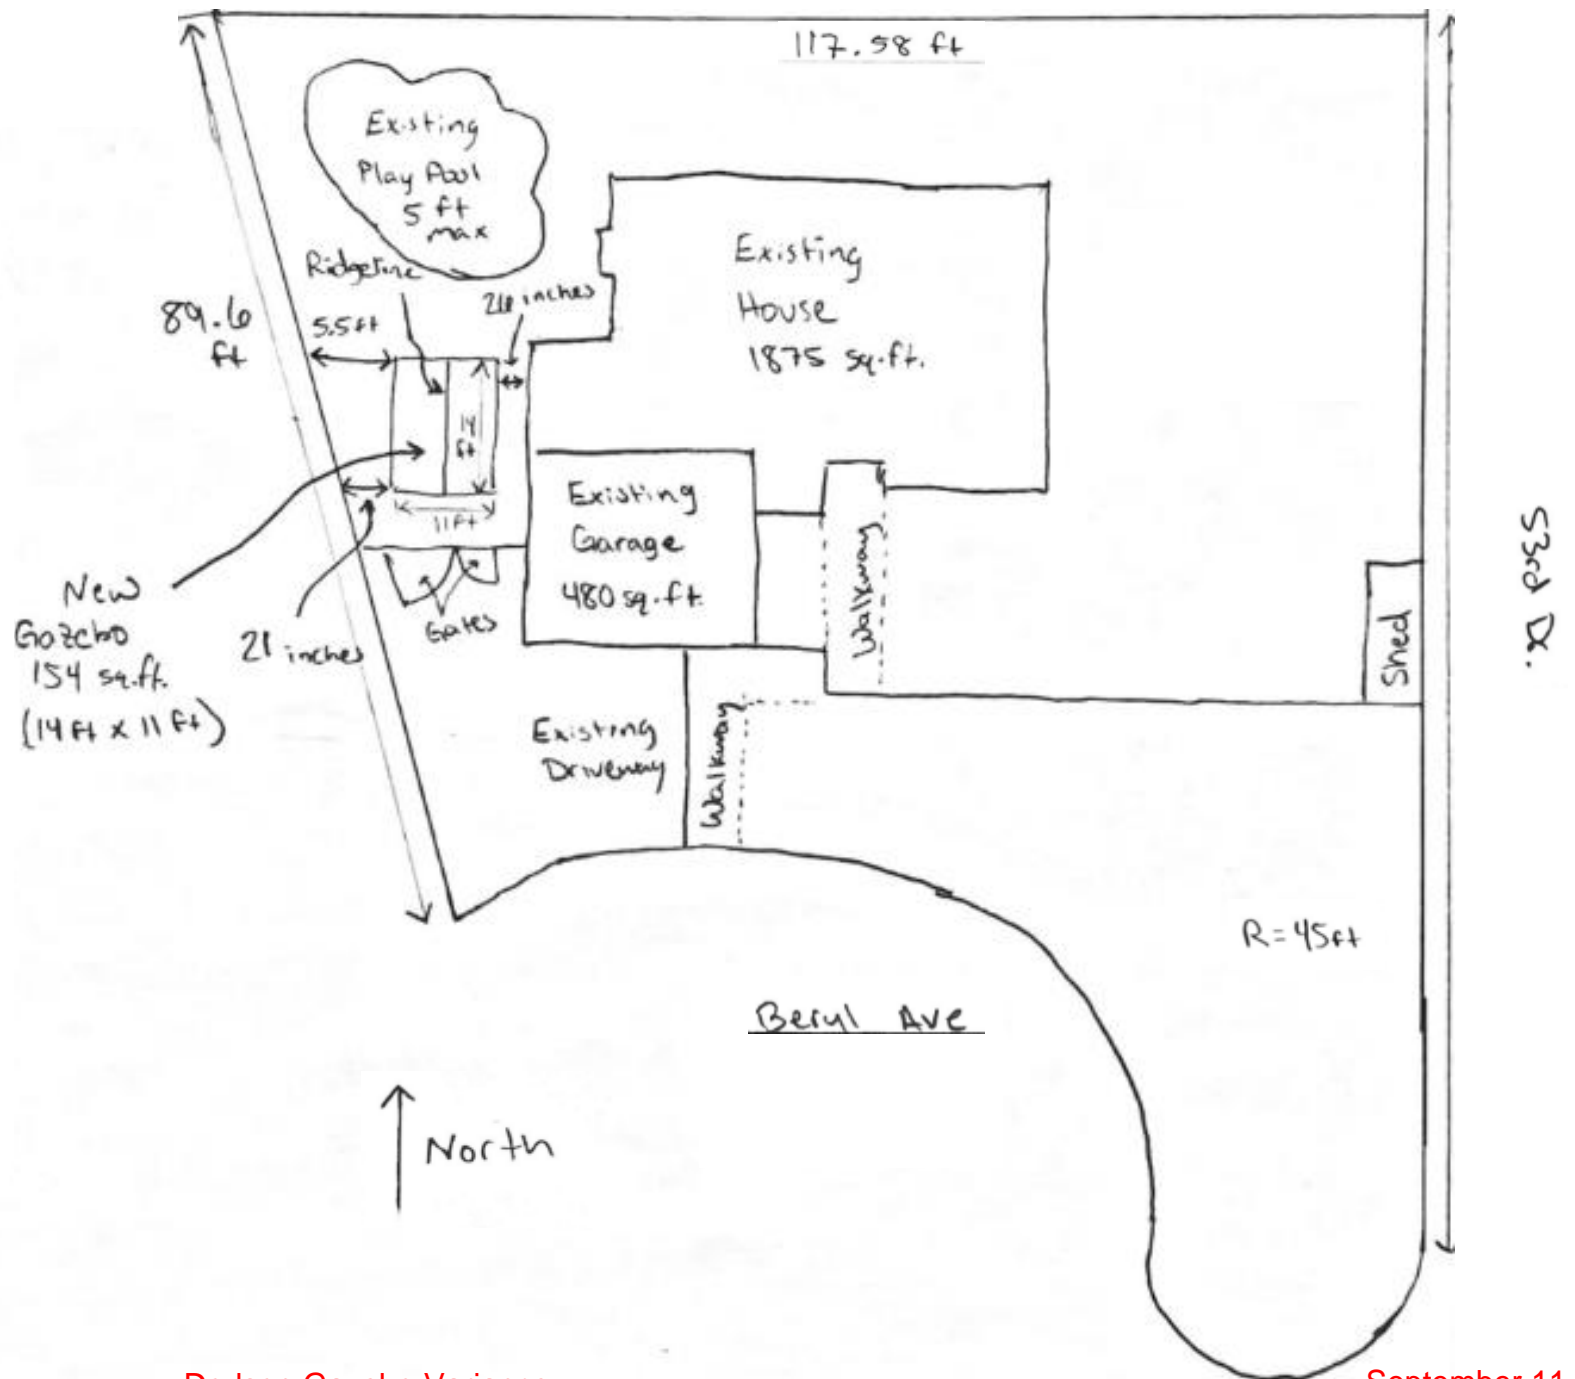 117.58 ft
Existing
Play Pool
5 ft
max
Ridgeline
inches
89.6
ft
5.5 ft
Existing
House
1875 sq.ft.
14
ft
11 ft
Existing
Garage
480 sq.ft.
Walkway
New
Gazebo
154 sq.ft.
(14 ft x 11 ft)
21 inches
Gates
Shed
53rd Dr.
Existing
Driveway
Walkway
R = 45 ft
Beryl Ave
North
September 11